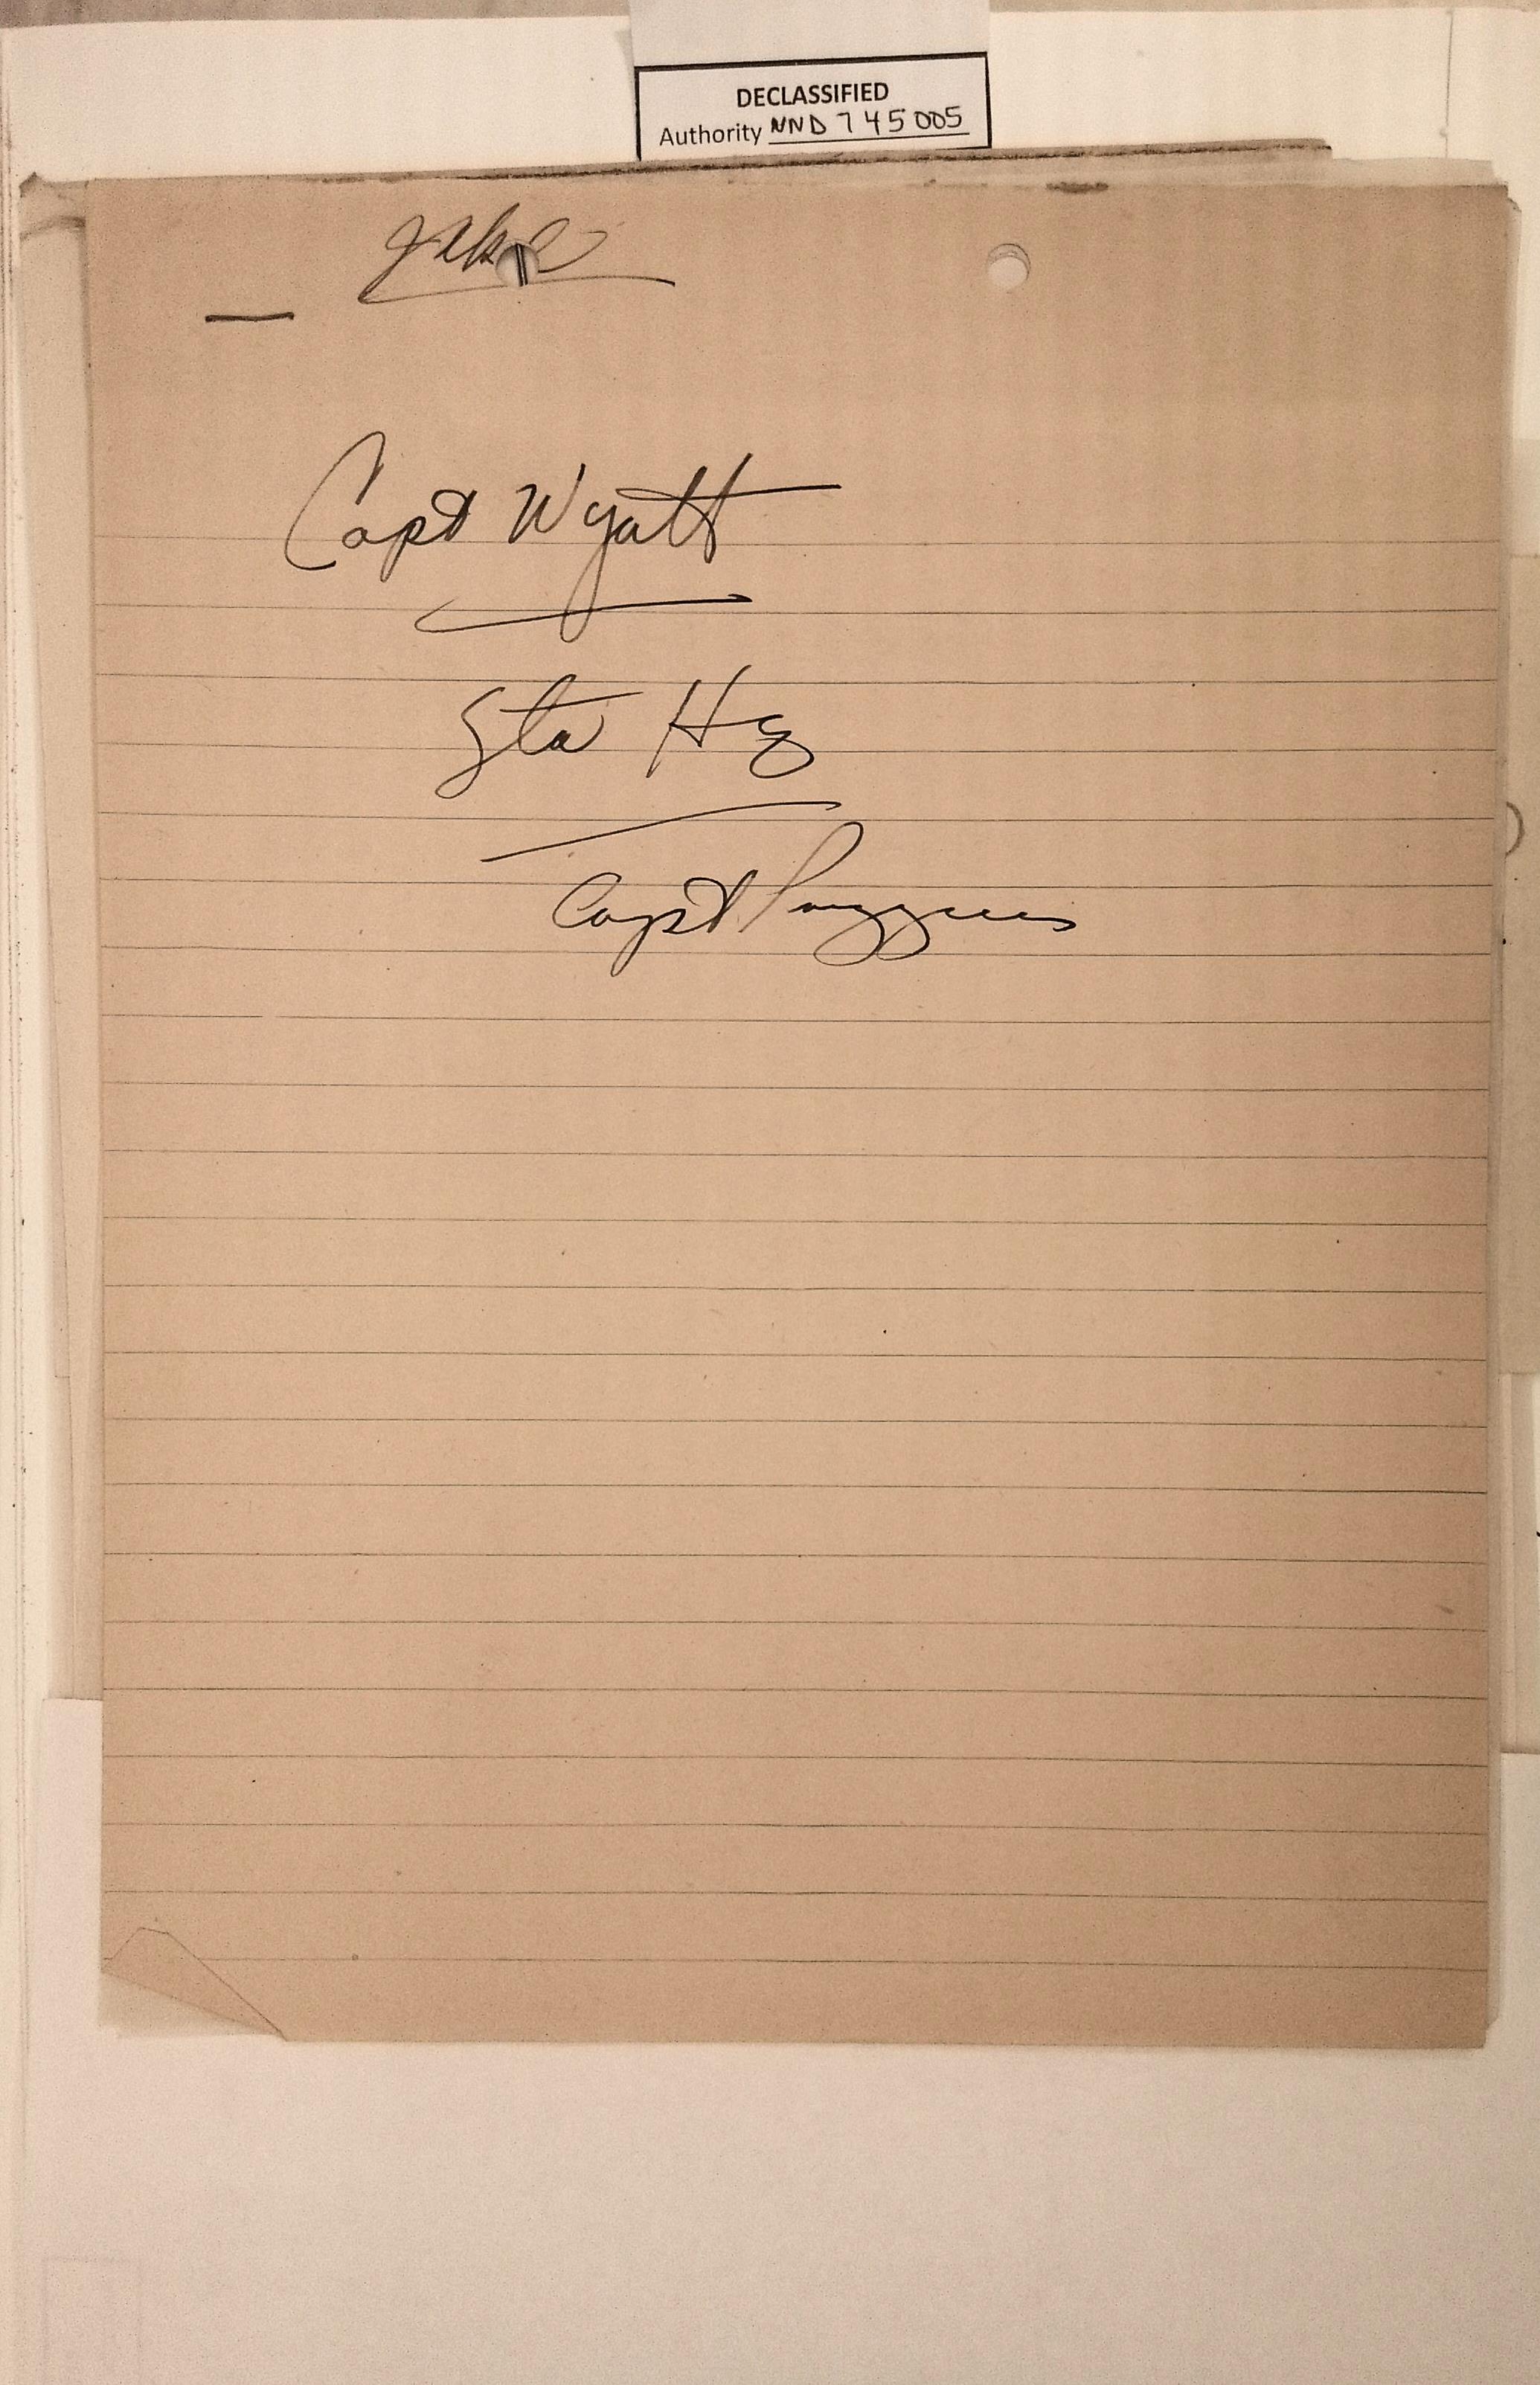 DECLASSIFIED
Authority NND 745005
Capt Wyatt
Sta Hq
Capt